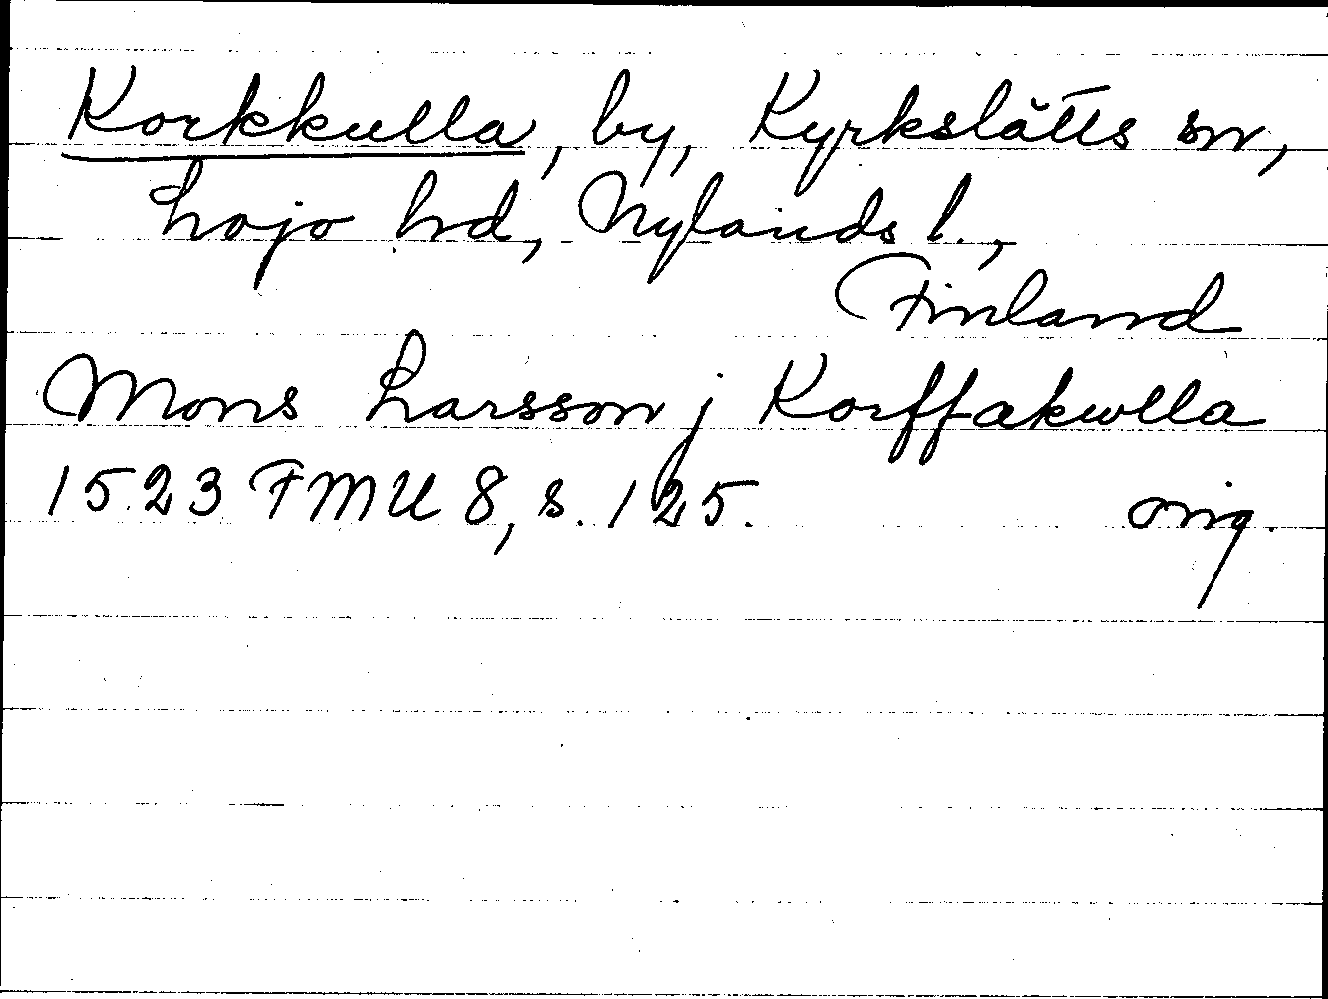 Korkkulla, by, Kyrkslätts sn,
Lojo hd, Nylands l.,
Finland
Mons Larsson j Korffakwlla
1523 FMU 8, s. 125. orig.